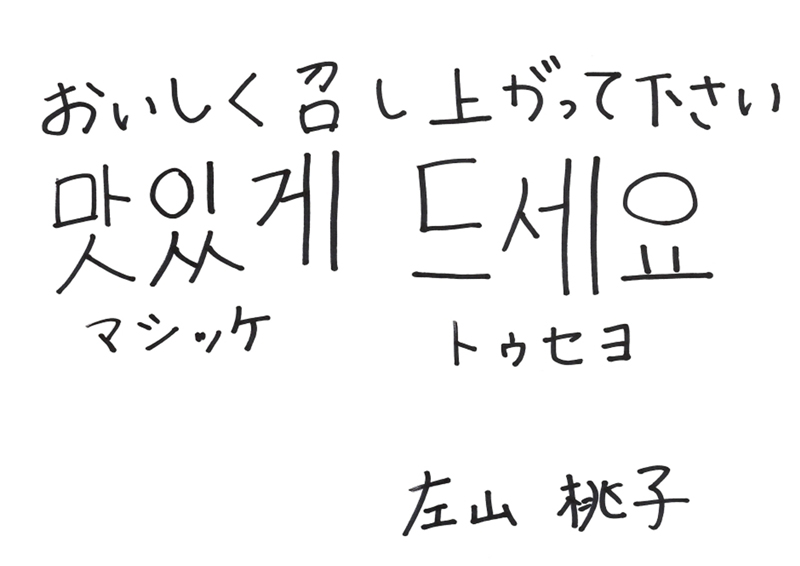 おいしく召し上がって下さい
맛있게 드세요
マシッケ トゥセヨ
左山 桃子